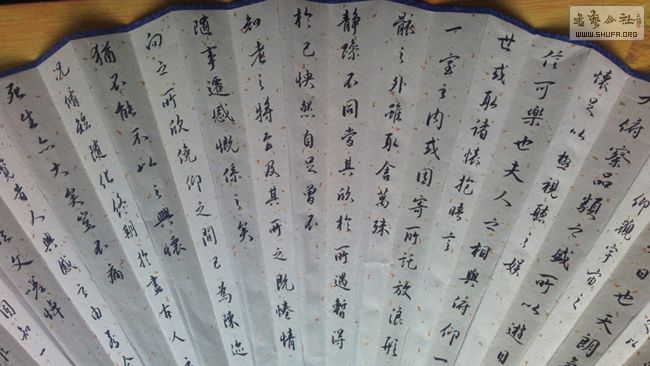 日也天朗
仰觀宇宙之
大俯察品類之盛所以遊目
懷足以極視聽之娛
信可樂也夫人之相與俯仰一
世或取諸懷抱悟言
一室之內或因寄所託放浪形
骸之外雖取舍萬殊
靜躁不同當其欣於所遇暫得
於己快然自足曾不
知老之將至及其所之既惓情
隨事遷感慨係之矣
向之所欣俛仰之間已為陳迹
猶不能不以之興懷
況脩短隨化終期於盡古人
死生亦大矣豈不痛
覽昔人興感之由若合
文嗟悼
固知一
書藝公社
WWW.SHUFA.ORG